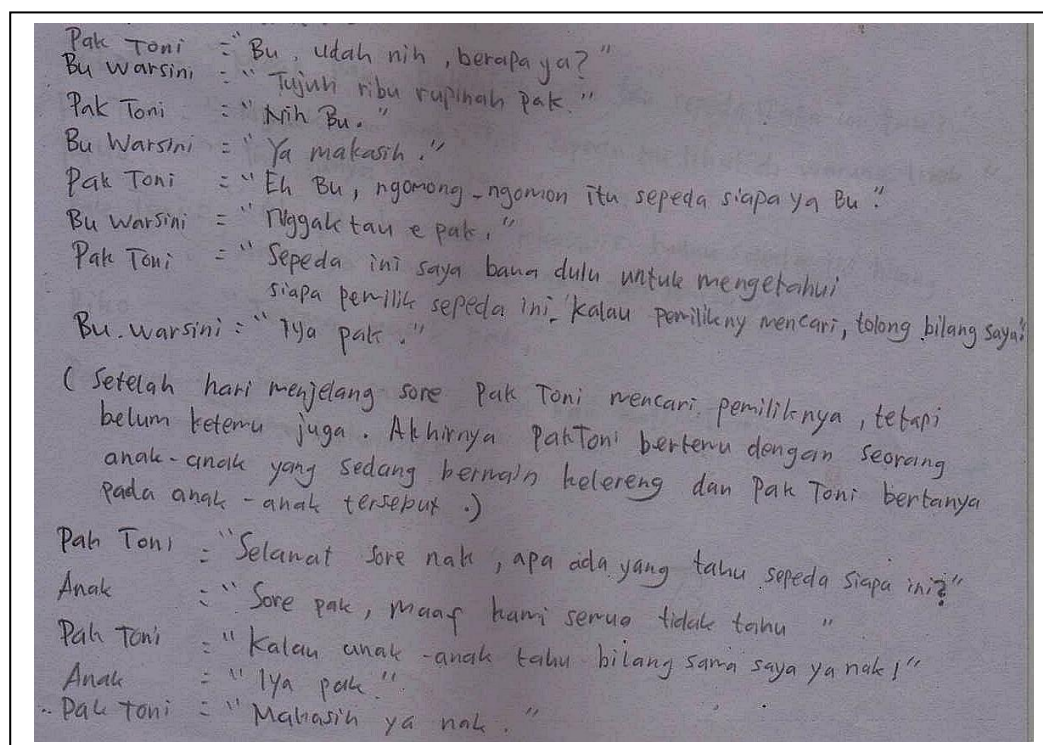 Pak Toni = "Bu, udah nih, berapa ya?"
Bu Warsini = "Tujuh ribu rupiah pak."
Pak Toni = "Nih Bu."
Bu Warsini = "Ya makasih."
Pak Toni = "Eh Bu, ngomong-ngomon itu sepeda siapa ya Bu".
Bu Warsini = "Nggak tau e pak."
Pak Toni = "Sepeda ini saya bawa dulu untuk mengetahui
siapa pemilik sepeda ini, kalau pemilikny mencari, tolong bilang saya".
Bu. Warsini = "Iya pak."
( Setelah hari menjelang sore Pak Toni mencari pemiliknya, tetapi
belum ketemu juga. Akhirnya Pak Toni bertemu dengan seorang
anak-anak yang sedang bermain kelereng dan Pak Toni bertanya
pada anak-anak tersebut.)
Pak Toni = "Selamat sore nak, apa ada yang tahu sepeda siapa ini?"
Anak = "Sore pak, maaf kami semua tidak tahu"
Pak Toni = "Kalau anak-anak tahu bilang sama saya ya nak!"
Anak = "Iya pak."
Pak toni = "Makasih ya nak."